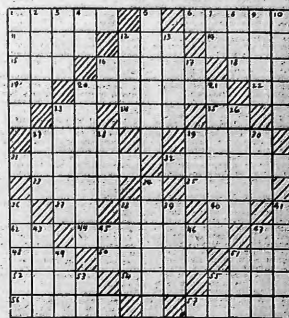 1 2 3 4 5 6 7 8 9 10
11 12 13 14
15 16 17 18
19 20 21 22
23 24 25 26
27 28 29 30
31 32
33 34 35
36 37 38 39 40 41
42 43 44 45 46 47
48 49 50 51
52 53 54 55
56 57